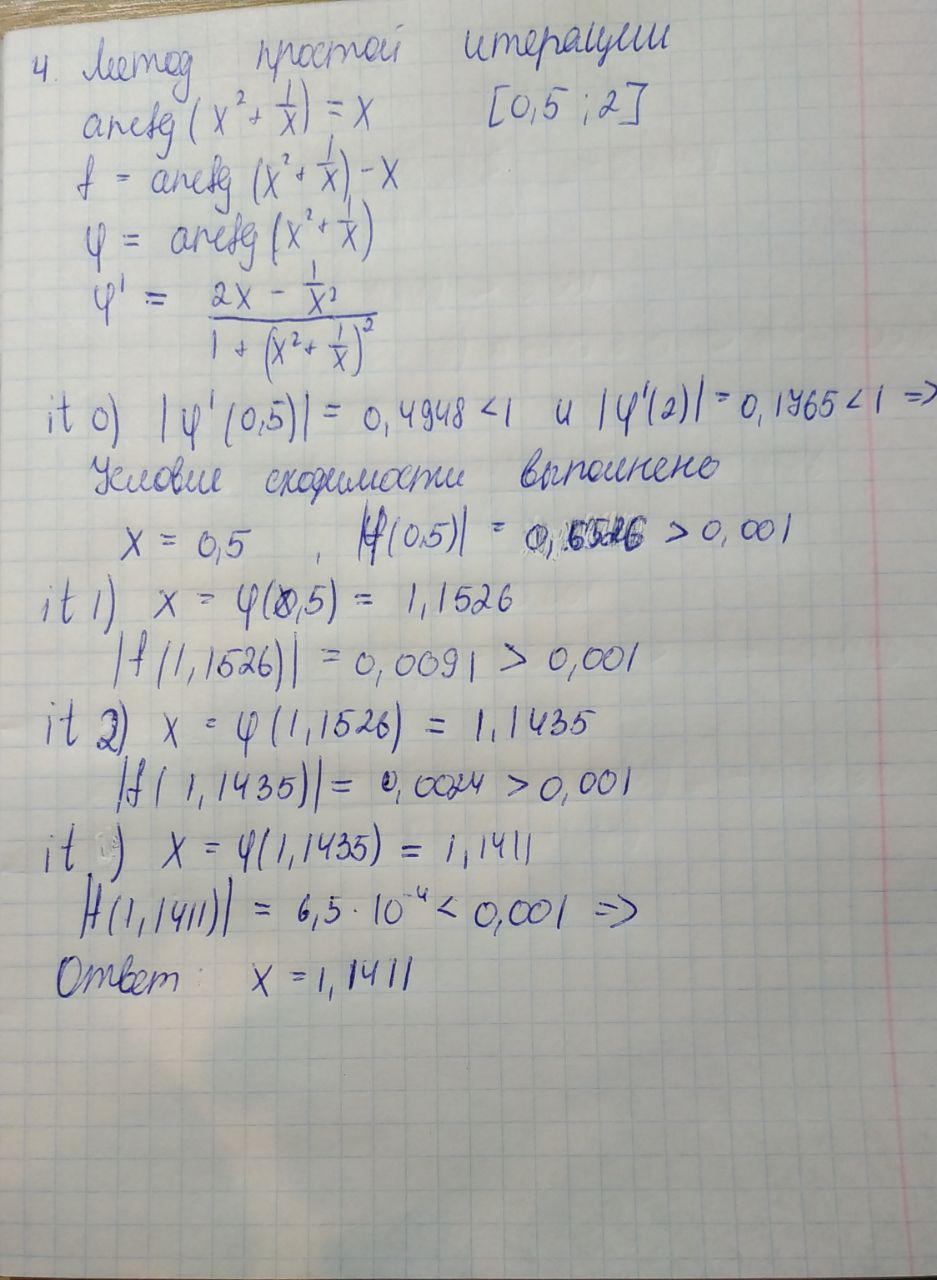 4. Метод простой итерации
arctg(x² + 1/x) = x [0,5 ; 2]
f = arctg(x² + 1/x) - x
φ = arctg(x² + 1/x)
φ' = (2x - 1/x²) / (1 + (x² + 1/x)²)
it 0) |φ'(0,5)| = 0,4948 < 1 и |φ'(2)| = 0,1765 < 1 =>
Условие сходимости выполнено
x = 0,5 , |f(0.5)| = 0,6526 > 0,001
it 1) x = φ(0,5) = 1,1526
|f(1,1526)| = 0,0091 > 0,001
it 2) x = φ(1,1526) = 1,1435
|f(1,1435)| = 0,0024 > 0,001
it ) x = φ(1,1435) = 1,1411
|f(1,1411)| = 6,5 · 10⁻⁴ < 0,001 =>
Ответ: x = 1,1411